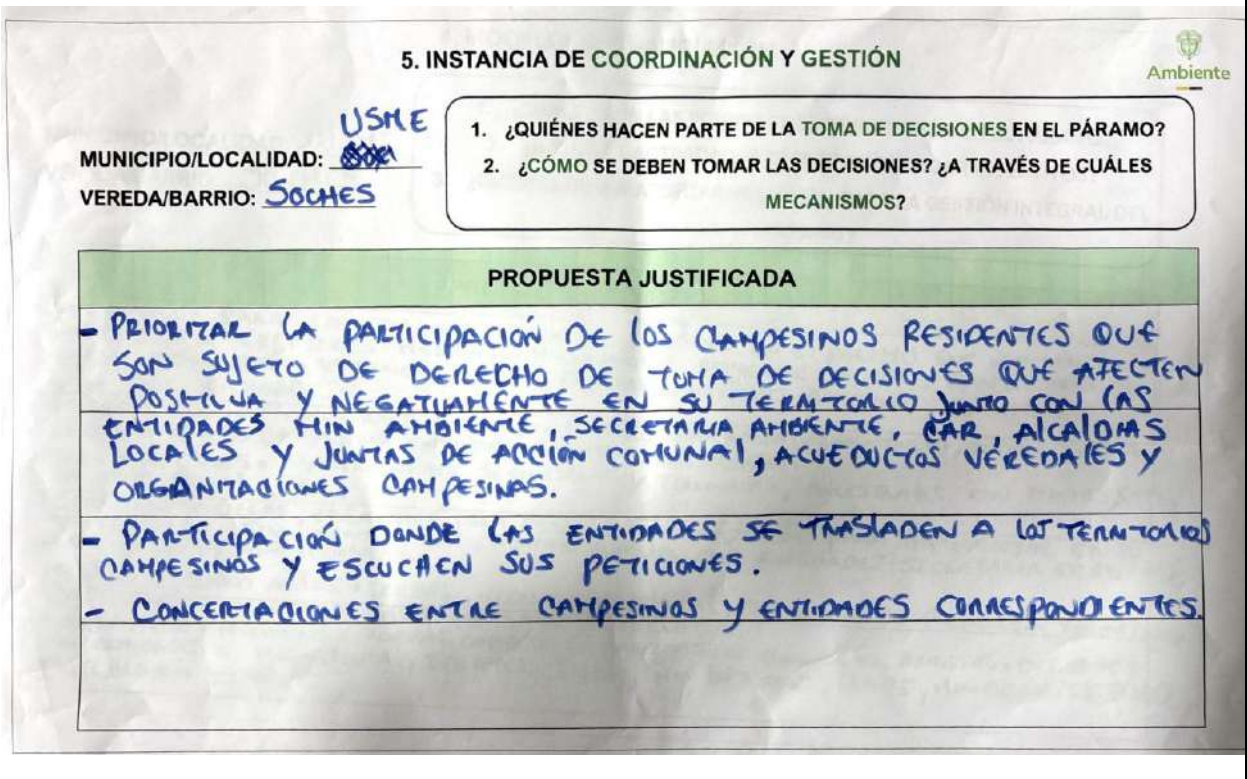 5. INSTANCIA DE COORDINACIÓN Y GESTIÓN
Ambiente
USME
MUNICIPIO/LOCALIDAD:
VEREDA/BARRIO: SOCHES
1. ¿QUIÉNES HACEN PARTE DE LA TOMA DE DECISIONES EN EL PÁRAMO?
2. ¿CÓMO SE DEBEN TOMAR LAS DECISIONES? ¿A TRAVÉS DE CUÁLES
MECANISMOS?
PROPUESTA JUSTIFICADA
- PRIORIZAR LA PARTICIPACIÓN DE LOS CAMPESINOS RESIDENTES QUE
SON SUJETO DE DERECHO DE TOMA DE DECISIONES QUE AFECTEN
POSITIVA Y NEGATIVAMENTE EN SU TERRITORIO JUNTO CON LAS
ENTIDADES MIN AMBIENTE, SECRETARIA AMBIENTE, CAR, ALCALDIAS
LOCALES Y JUNTAS DE ACCIÓN COMUNAL, ACUEDUCTOS VEREDALES Y
ORGANIZACIONES CAMPESINAS.
- PARTICIPACIÓN DONDE LAS ENTIDADES SE TRASLADEN A LOS TERRITORIOS
CAMPESINOS Y ESCUCHEN SUS PETICIONES.
- CONCERTACIONES ENTRE CAMPESINOS Y ENTIDADES CORRESPONDIENTES.